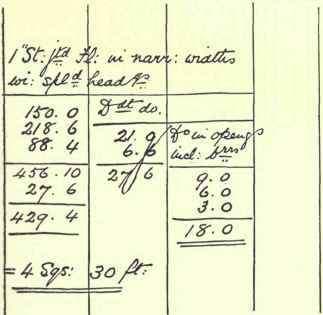 1" St: jtd Fl: in narr: widths
wi: spld headgs
150.0
218.6
88.4
456.10
27.6
429.4
= 4 Sqs: 30 ft:
Ddt do.
21.0
6.6
27.6
Do in opengs
incl: brrs
9.0
6.0
3.0
18.0